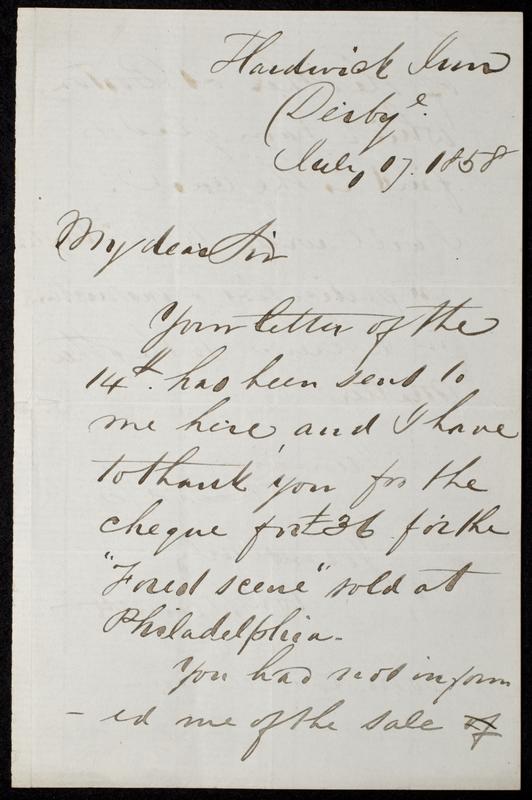 Hardwick Inn
Derbye.
July 17. 1858
My dear Sir
Your letter of the
14th. has been sent to
me here, and I have
to thank you for the
cheque for £36 for the
"Forest scene" sold at
Philadelphia -
You had not inform
- ed me of the sale of